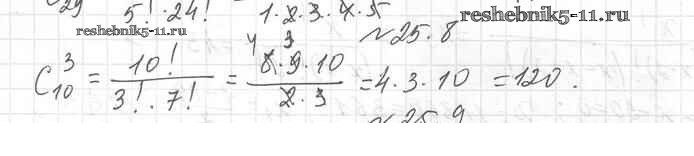 29 5! · 24! 1 · 2 · 3 · 4 · 5
reshebnik5-11.ru
reshebnik5-11.ru
№ 25.8
C₁₀³ = 10! / (3! · 7!) = (8 · 9 · 10) / (2 · 3) = 4 · 3 · 10 = 120.
4 3
№ 25.9